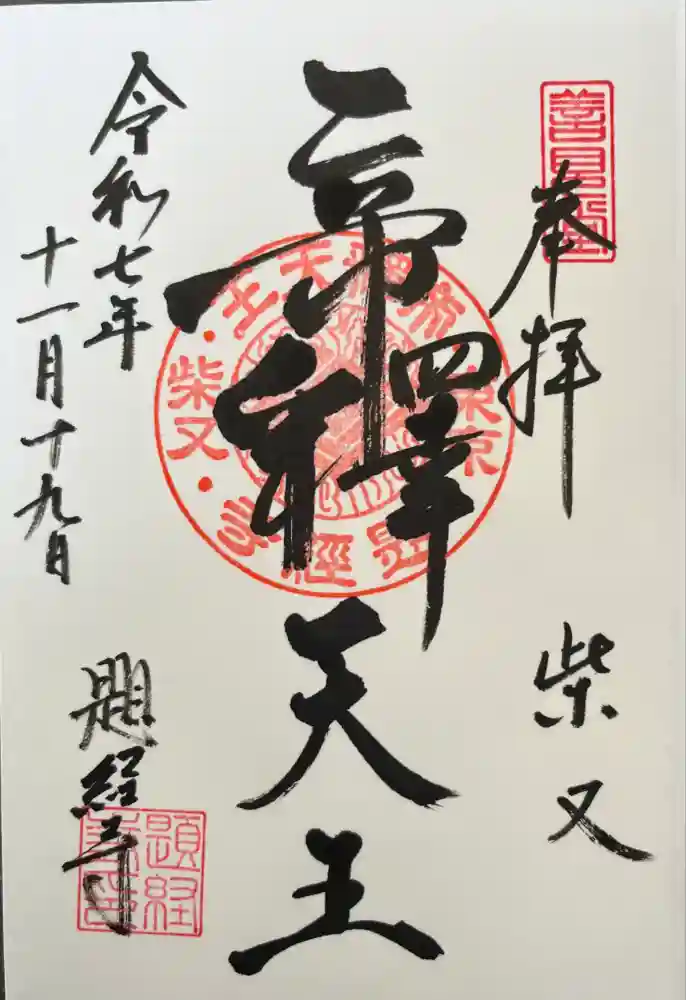 奉拝
柴又
帝釋天王
令和七年
十一月十九日
題経寺
東京
柴又
帝釋天王
題經寺
題経